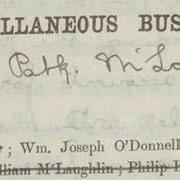 LLANEOUS BUS
Patk. McLo
; Wm. Joseph O'Donnell
lliam M'Laughlin; Philip